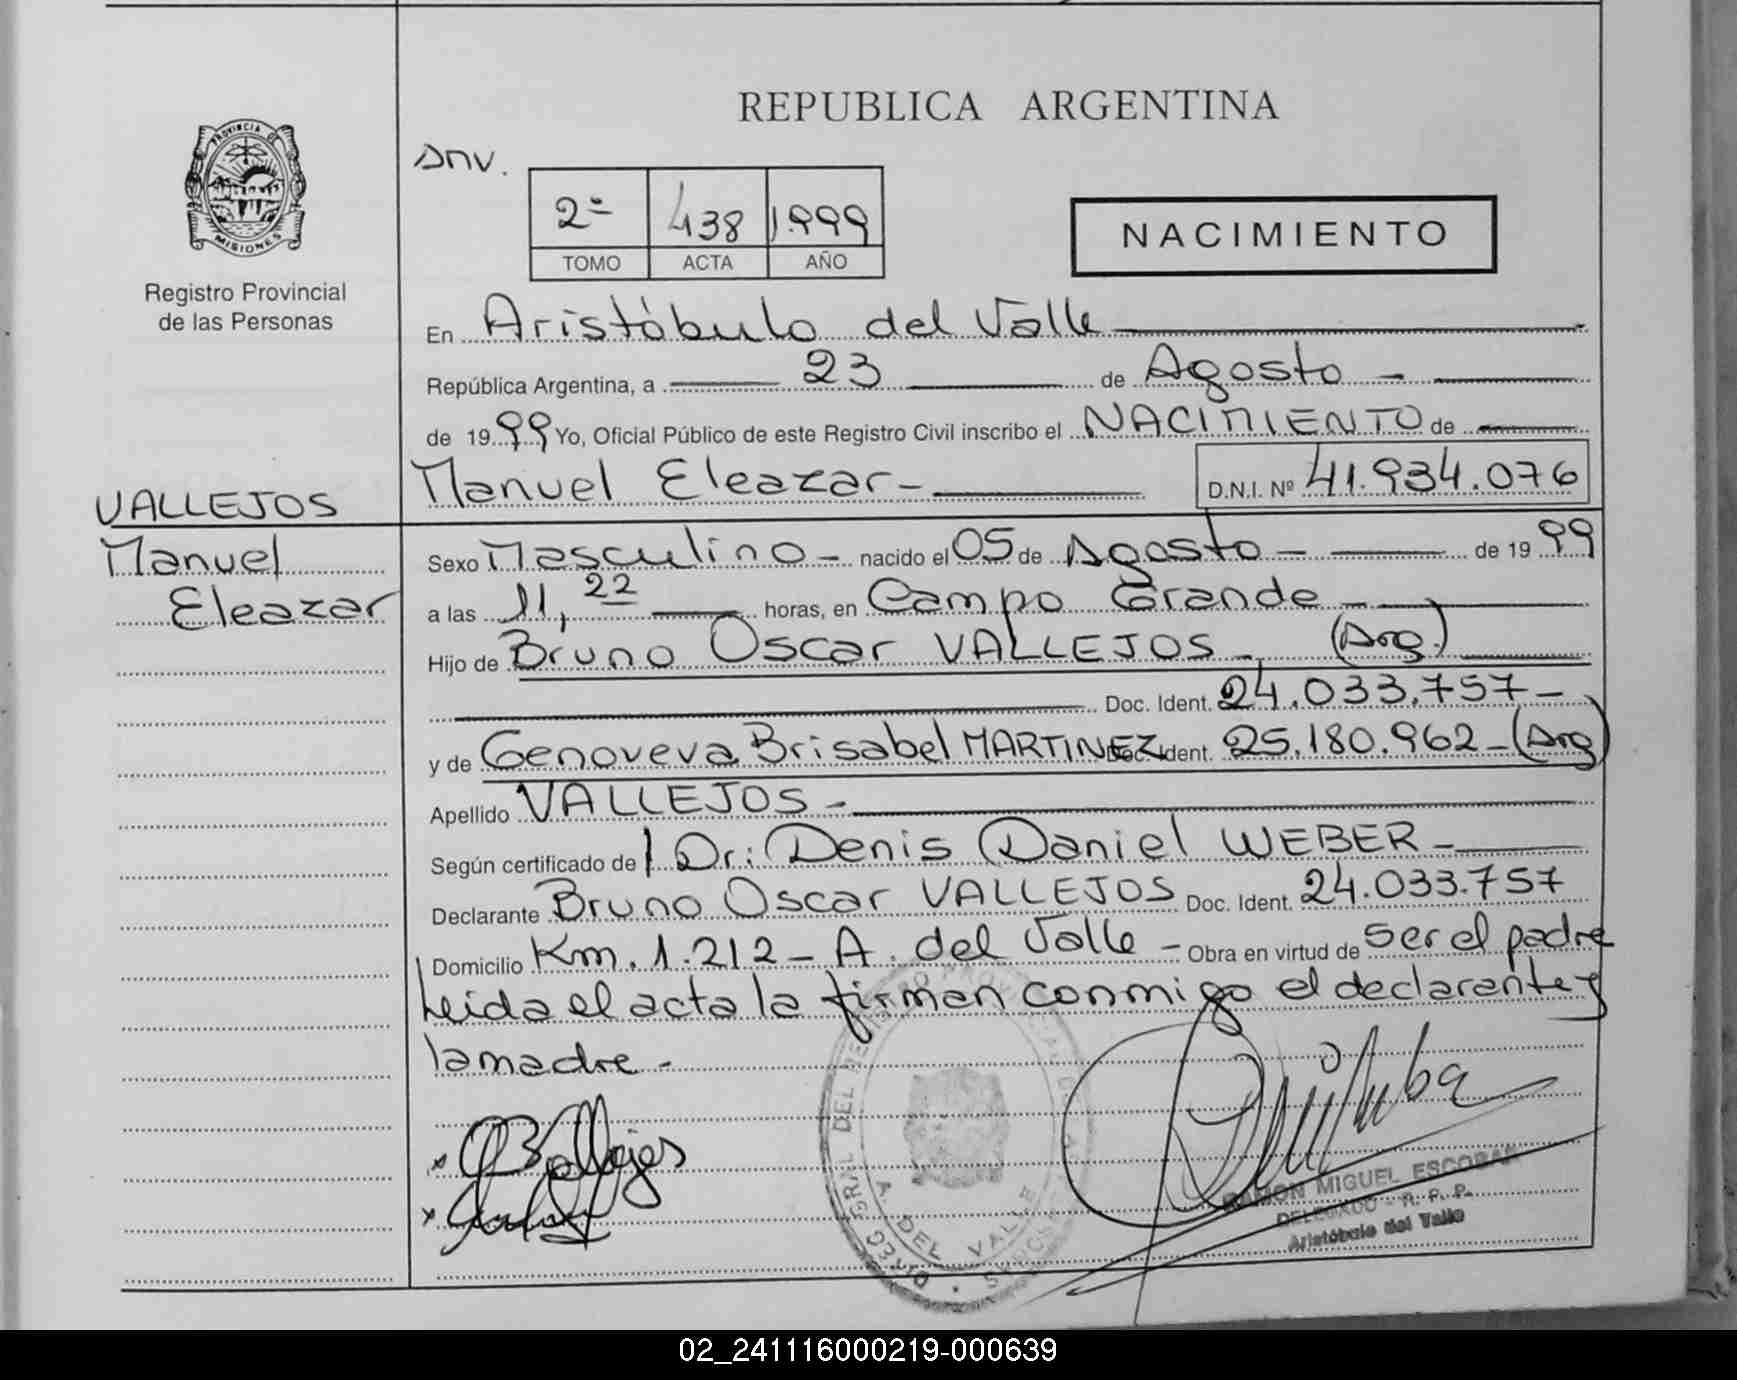 REPUBLICA ARGENTINA
PROVINCIA DE
MISIONES
Registro Provincial
de las Personas
DNV.
2º 438 1.999
TOMO ACTA AÑO
NACIMIENTO
En Aristóbulo del Valle
República Argentina, a 23 de Agosto -
de 1999 Yo, Oficial Público de este Registro Civil inscribo el NACIMIENTO de
Manuel Eleazar - D.N.I. Nº 41.934.076
VALLEJOS
Manuel
Eleazar
Sexo Masculino - nacido el 05 de Agosto - de 1999
a las 11,22 horas, en Campo Grande -
Hijo de Bruno Oscar VALLEJOS - (Arg.)
Doc. Ident. 24.033.757 -
y de Genoveva Brisabel MARTINEZ Doc. Ident. 25.180.962 - (Arg)
Apellido VALLEJOS -
Según certificado de Dr: Denis Daniel WEBER -
Declarante Bruno Oscar VALLEJOS Doc. Ident. 24.033.757
Domicilio Km. 1.212 - A. del Valle - Obra en virtud de ser el padre
Leida el acta la firman conmigo el declarante y
la madre -
A. DEL VALLE
RAMON MIGUEL ESCOBAR
DELEGADO - R. P. P.
Aristóbulo del Valle
02_241116000219-000639